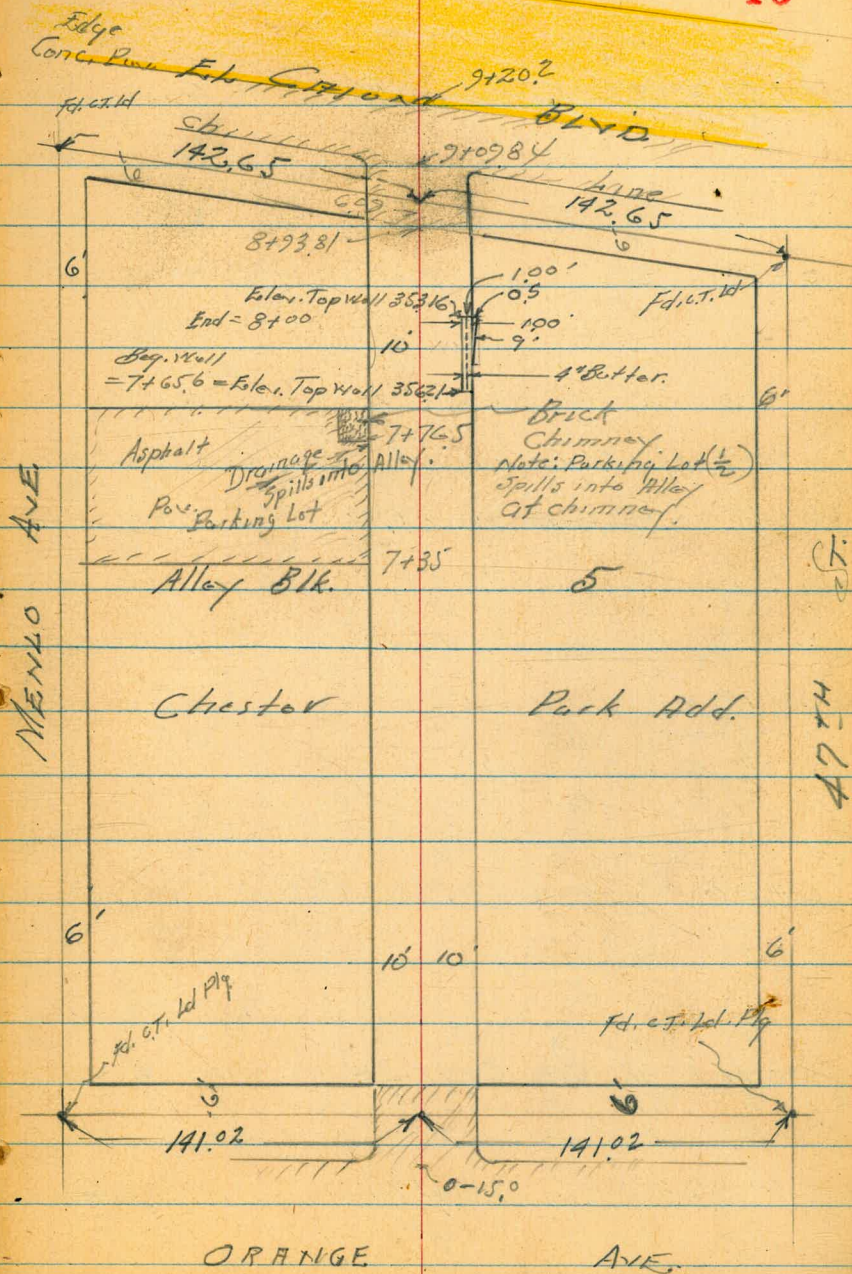 Edge
Conc.
El Cajon BLVD.
9+20.2
Fd. c.T. Ld
Cb
142.65
9+09.84
Lane
142.65
6
8+93.81
6
6'
1.00'
0.5
Fd. c.T. Ld
Elev. Top Wall 353.16
End = 8+00
10'
1.00
9'
Beg. Wall
= 7+65.6 = Elev. Top Wall 356.21
4" Batter.
6'
Brick
Chimney
7+76.5
Asphalt
Drainage
Spills into Alley.
Note: Parking Lot (1/2)
Spills into Alley
at chimney.
Pav.
Parking Lot
7+35
MENLO AVE.
47TH ST.
Alley Blk. 5
Chester Park Add.
6'
10' 10'
6'
Fd. c.T. Ld Plg
Fd. c.T. Ld. Plg
6'
6'
141.02
141.02
0-15.0
ORANGE AVE.